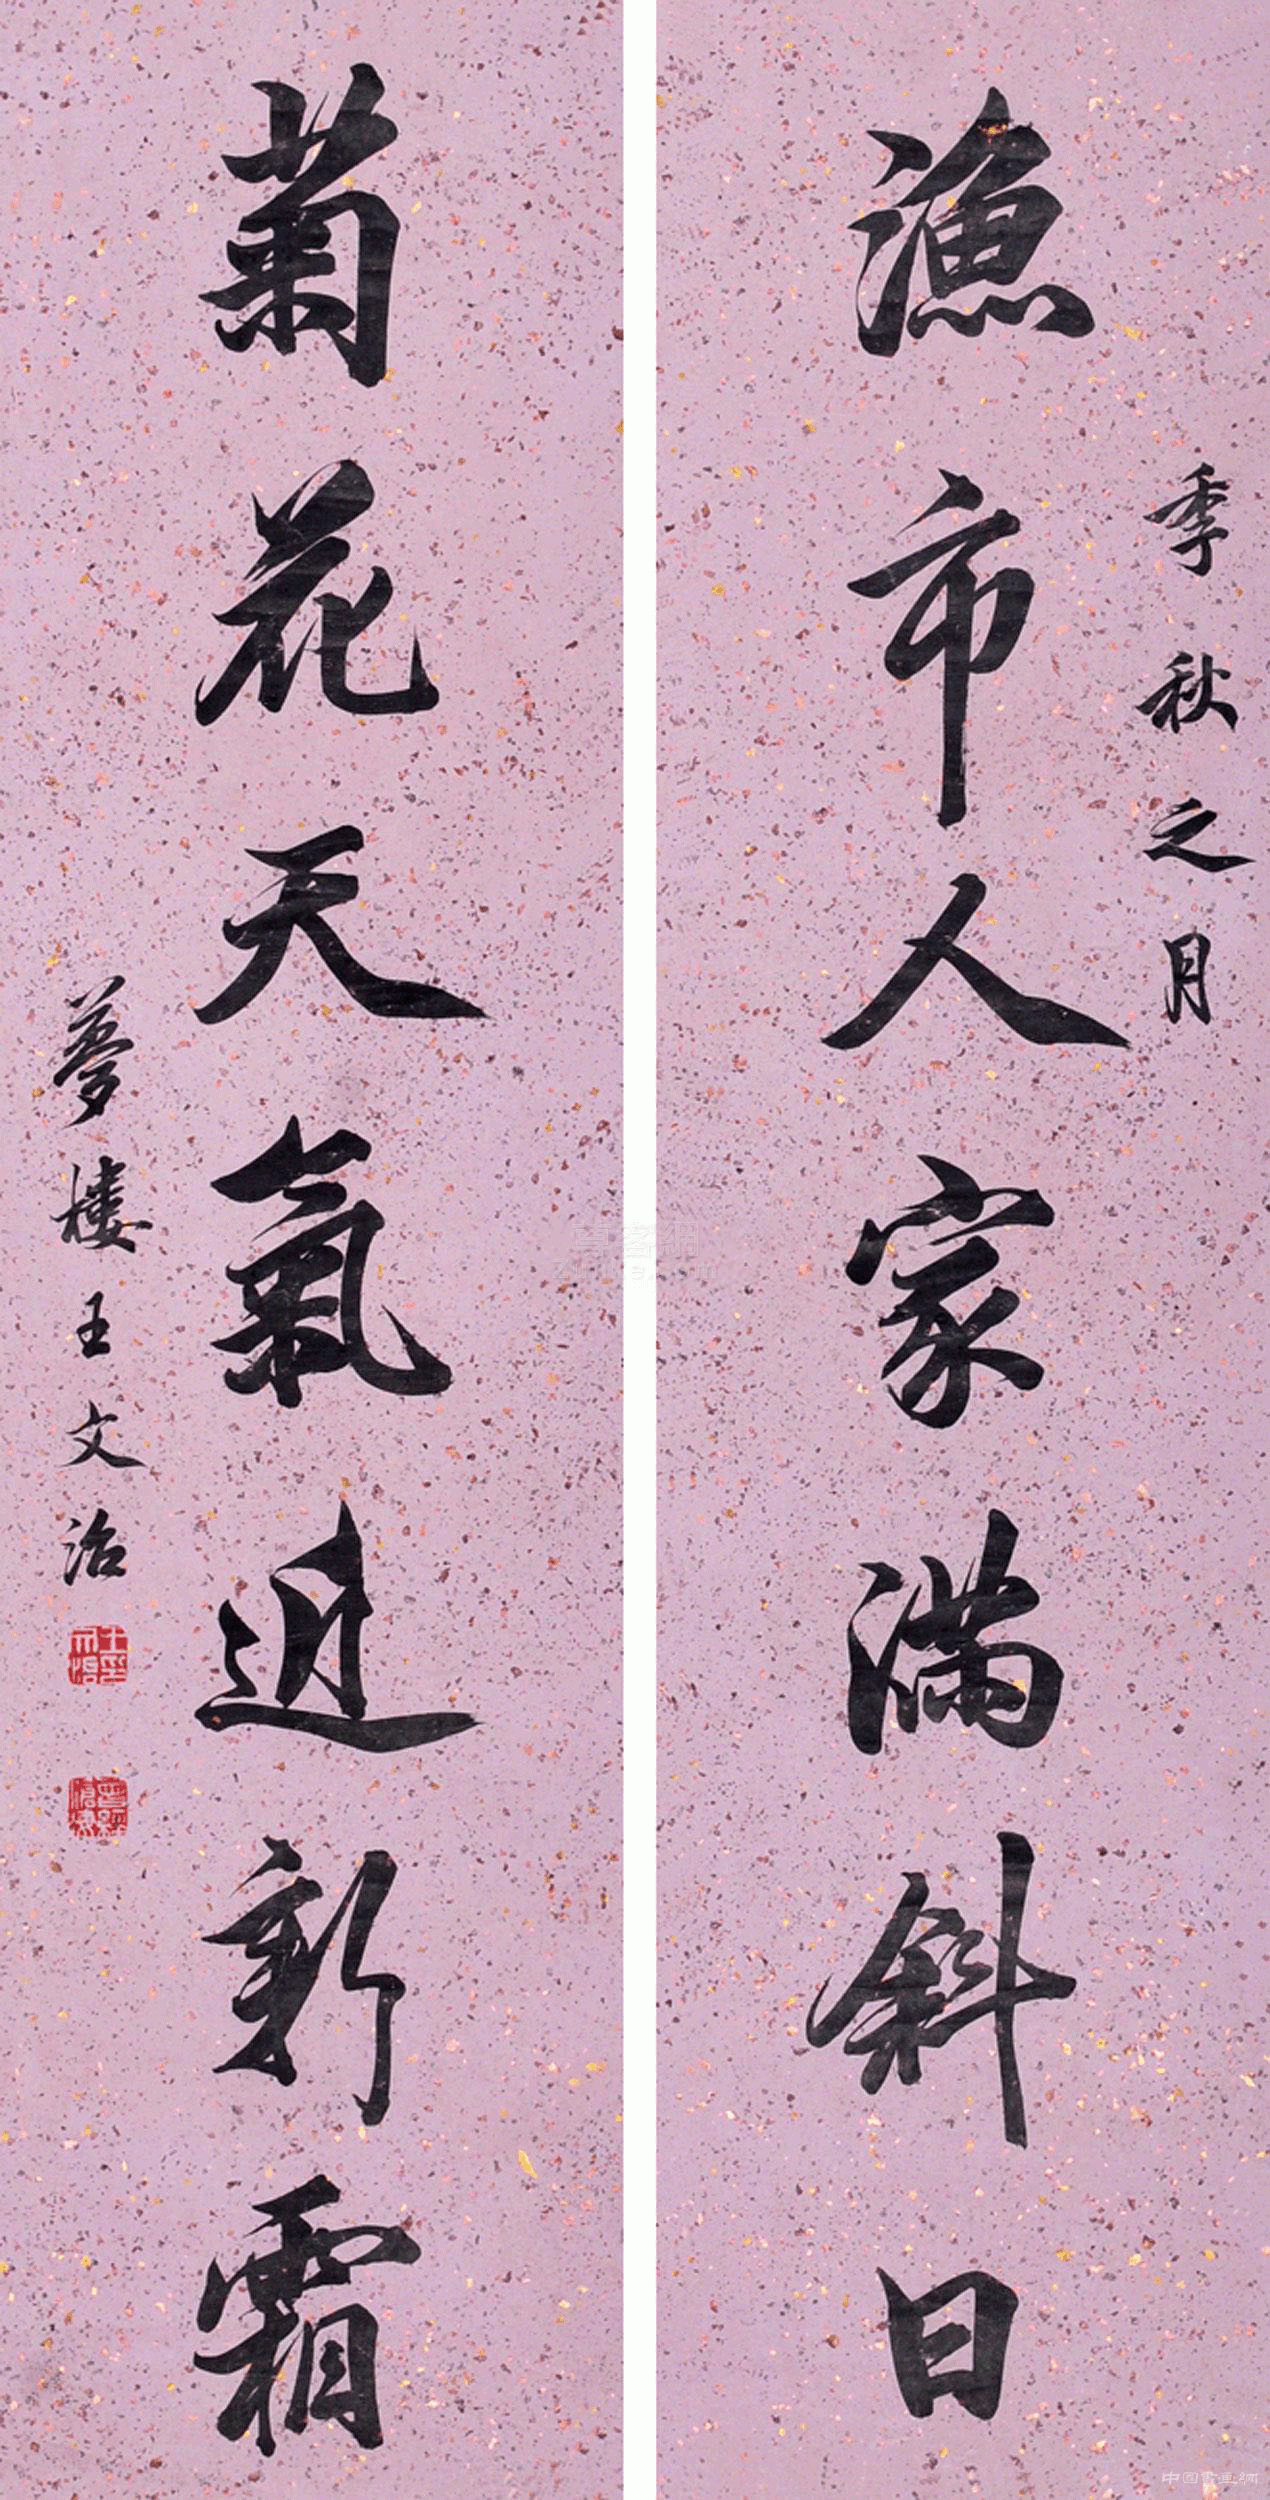 季秋之月
漁市人家滿斜日
菊花天氣近新霜
夢樓王文治
中國書畫網